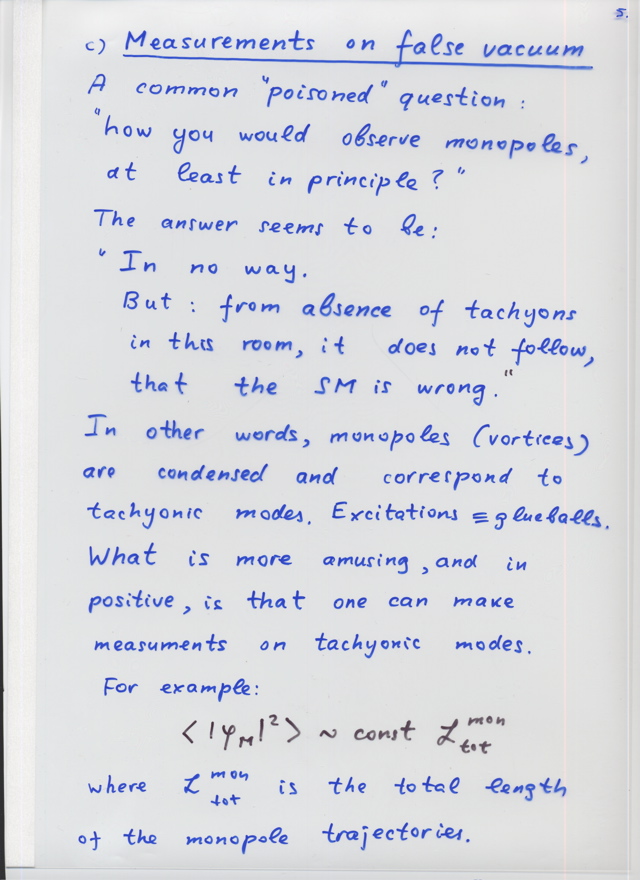 5.
c) Measurements on false vacuum
A common "poisoned" question :
"how you would observe monopoles,
at least in principle ? "
The answer seems to be :
" In no way.
But : from absence of tachyons
in this room, it does not follow,
that the SM is wrong. "
In other words, monopoles (vortices)
are condensed and correspond to
tachyonic modes. Excitations ≡ glueballs.
What is more amusing, and in
positive, is that one can make
measuments on tachyonic modes.
For example:
< |φ_M|² > ~ const L_tot^mon
where L_tot^mon is the total length
of the monopole trajectories.